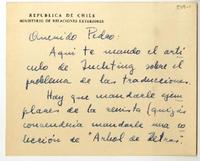 REPUBLICA DE CHILE
MINISTERIO DE RELACIONES EXTERIORES
Querido Pedro:
Aqui te mando el artí
culo de Juchting sobre el
problema de las traducciones.
Hay que mandarle ejem
plares de la revista (quizás
convendría mandarle una co
lección de "Arbol de Letras".